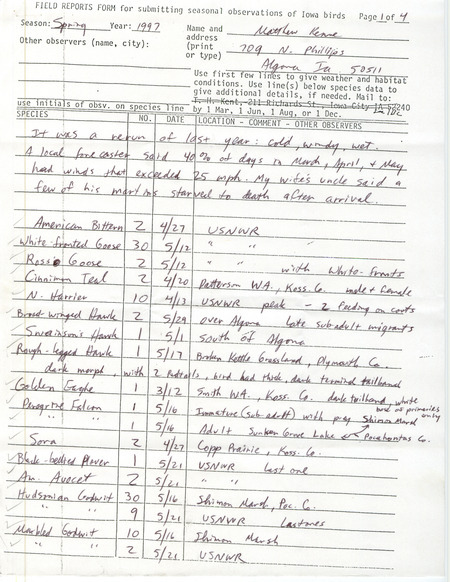 FIELD REPORTS FORM for submitting seasonal observations of Iowa birds Page 1 of 4
Season: Spring Year: 1997 Name and Matthew Kenne
address
Other observers (name, city): (print 709 N. Phillips
or type)
Algona Ia 50511
Use first few lines to give weather and habitat
conditions. Use line(s) below species data to
give additional details, if needed. Mail to:
T. H. Kent, 211 Richards St., Iowa City IA 52240
use initials of obsv. on species line by 1 Mar, 1 Jun, 1 Aug, or 1 Dec.
SPECIES NO. DATE LOCATION - COMMENT - OTHER OBSERVERS
It was a rerun of last year: cold, windy, wet.
A local forecaster said 40% of days in March, April, & May
had winds that exceeded 25 mph. My wife's uncle said a
few of his martins starved to death after arrival.
American Bittern 2 4/27 USNWR
White-fronted Goose 30 5/12 " "
Ross's Goose 2 5/12 " " with White-fronts
Cinnimon Teal 2 4/20 Patterson WA., Koss. Co. male & female
N. Harrier 10 4/13 USNWR peak - 2 feeding on coots
Broad-winged Hawk 2 5/29 over Algona late subadult migrants
Swainson's Hawk 1 5/1 South of Algona
Rough-legged Hawk 1 5/17 Broken Kettle Grassland, Plymouth Co.
dark morph, with 2 Redtails, bird had thick, dark terminal tailband
Golden Eagle 1 3/12 Smith WA., Koss. Co. dark tailband, white
base of primaries only
Peregrine Falcon 1 5/16 Immature (sub-adult) with prey Shimon Marsh
" " 1 5/16 Adult Sunken Grove Lake Pocahontas Co.
Sora 2 4/27 Copp Prairie, Koss. Co.
Black-bellied Plover 1 5/21 USNWR last one
Am. Avocet 2 5/21 " "
Hudsonian Godwit 30 5/16 Shimon Marsh, Poc. C.
" " 9 5/21 USNWR Last ones
Marbled Godwit 10 5/16 Shimon Marsh
" " 2 5/21 USNWR